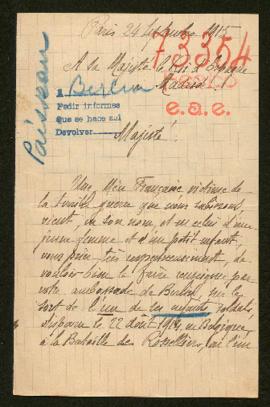 Paris 24 Septembre 1915
73354
A Sa Majesté le Roi d'Espagne
Madrid
A Berlin
Pedir informes
que se hace así
Devolver
e.a.e.
Paisseau
Majesté
Une Mère Française victime de
la terrible guerre que nous subissons,
vient, en son nom, et en celui d'une
jeune femme et d'un petit enfant,
vous prier très respectueusement de
vouloir bien le faire renseigner par
votre ambassade de Berlin, sur le
sort de l'un de ses enfants soldats
disparu le 22 août 1914, en Belgique
à la Bataille de Rossellies, où l'un